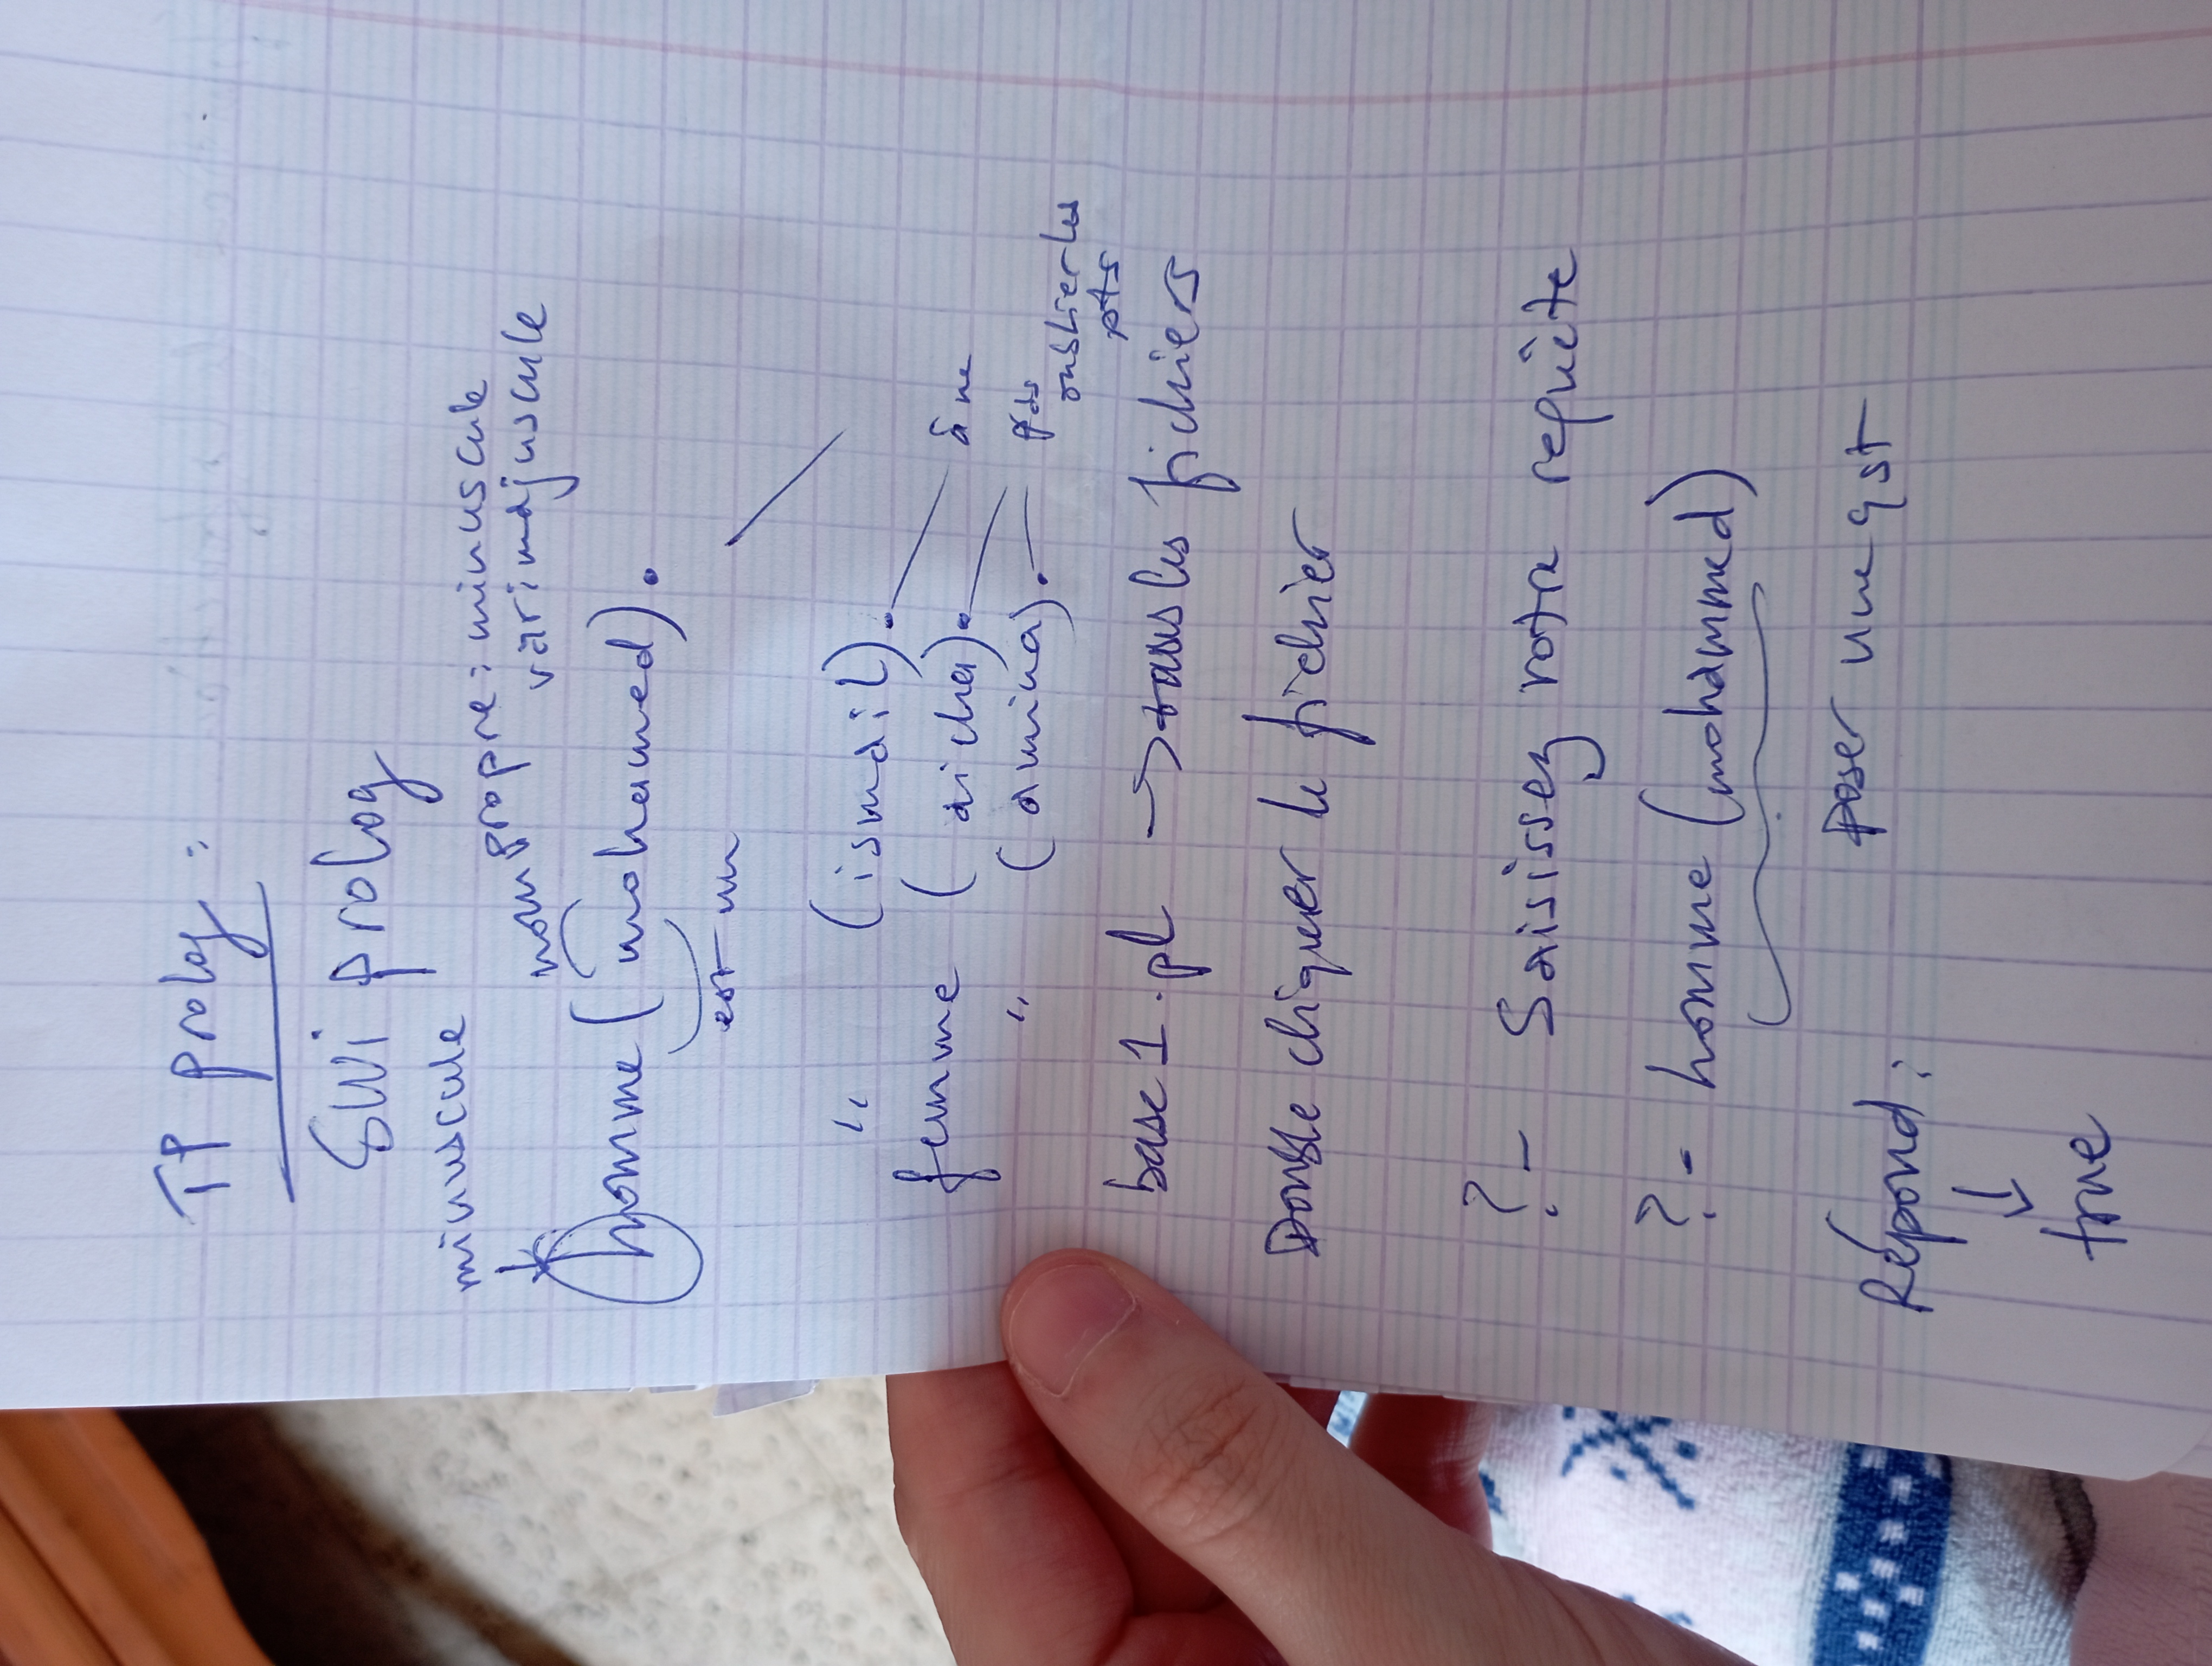 TP prolog :
SWi prolog
minuscule
nom propre : minuscule
var : majuscule
homme (mohamed).
est un
" (ismail).
femme (aicha).
" (amina).
à ne
pas
oublier les
pts
base 1.pl → tous les fichiers
Double cliquer le fichier
?- Saisissez votre requête
?- homme (mohammed)
poser une qst
Répond :
↓
true